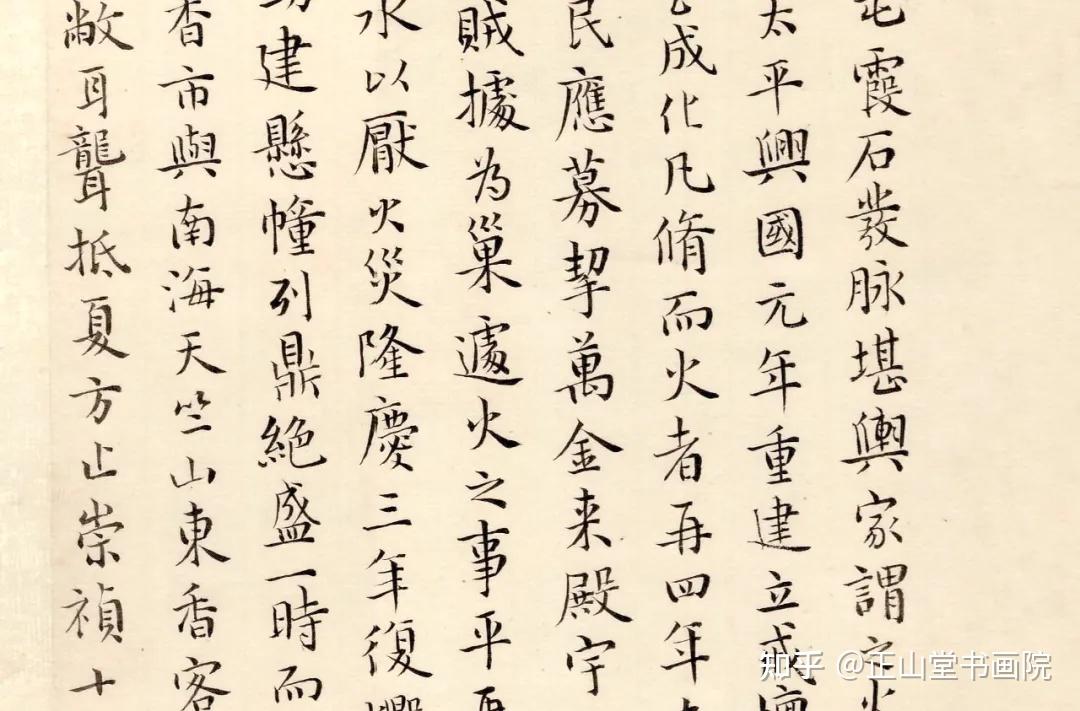 霞石發脉堪輿家謂之火
太平興國元年重建立成壞
成化凡脩而火者再四年
民應募挈萬金来殿宇
賊據為巢遽火之事平再
水以厭火災隆慶三年復
建懸幢列鼎絶盛一時而
香市與南海天竺山東香客
敝耳聾抵夏方止崇禎十
知乎 @正山堂书画院